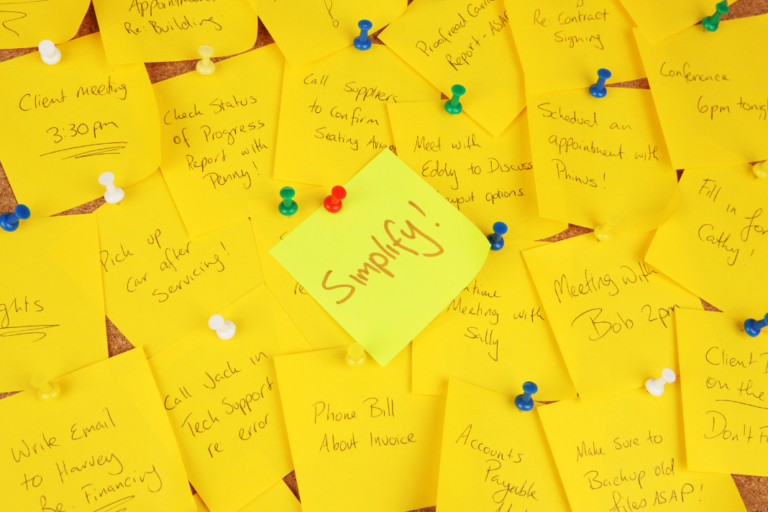 Re: Building
Proofread
Report - ASAP
Re: Contract
Signing
Client meeting
3:30pm
Check Status
of Progress
Report with
Penny!
Call Suppliers
to confirm
Seating
Meet with
Eddy to Discuss
options
Schedul an
appointment with
Conference
6pm
Fill in for
Cathy!
Pick up
Car after
Servicing!
Simplify!
Meeting with
Sally
Meeting with
Bob 2pm
Client
on the
Don't
Write Email
to Harvey
Re: Financing
Call Jack in
Tech Support
re error
Phone Bill
About Invoice
Accounts
Payable
Make Sure to
Backup old
files ASAP!